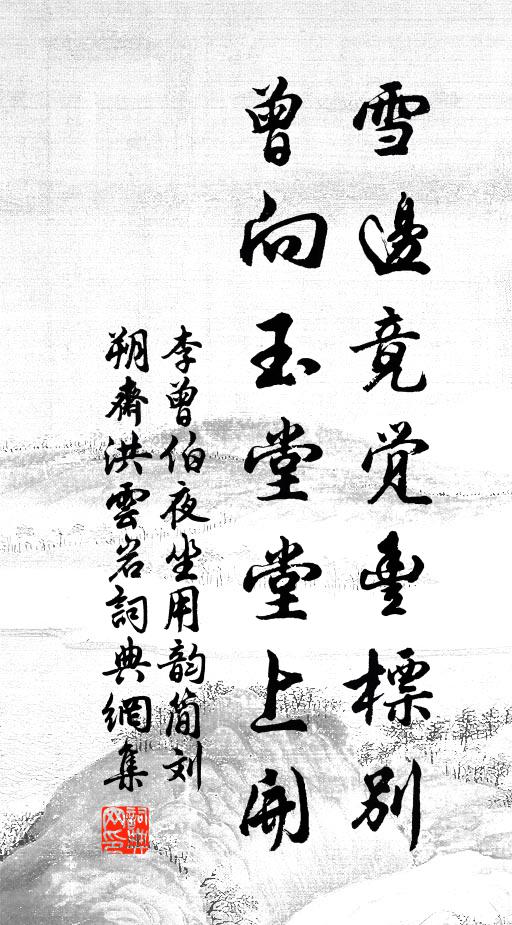 雪邊竟覺豐標別
曾向玉堂堂上開
李曾伯夜坐用韵簡刘
朔齋洪雲岩詞典網集